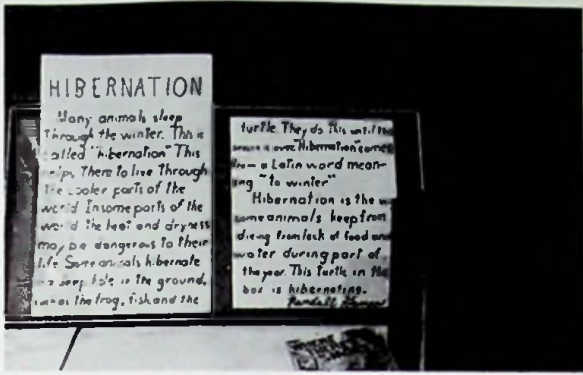 HIBERNATION
Many animals sleep
through the winter. This is
called "hibernation" This
helps There to live Through
the cooler parts of the
world In some parts of the
world The heat and dryness
may be dangerous to their
life Some animals hibernate
deep hole in the ground,
the frog, fish and the
turtle. They do This until the
is over. "Hibernation" comes
from a Latin word mean-
ing "to winter"
Hibernation is the
some animals keep from
dieing from lack of food and
water during part of
the year. This turtle in the
box is hibernating.
Randall